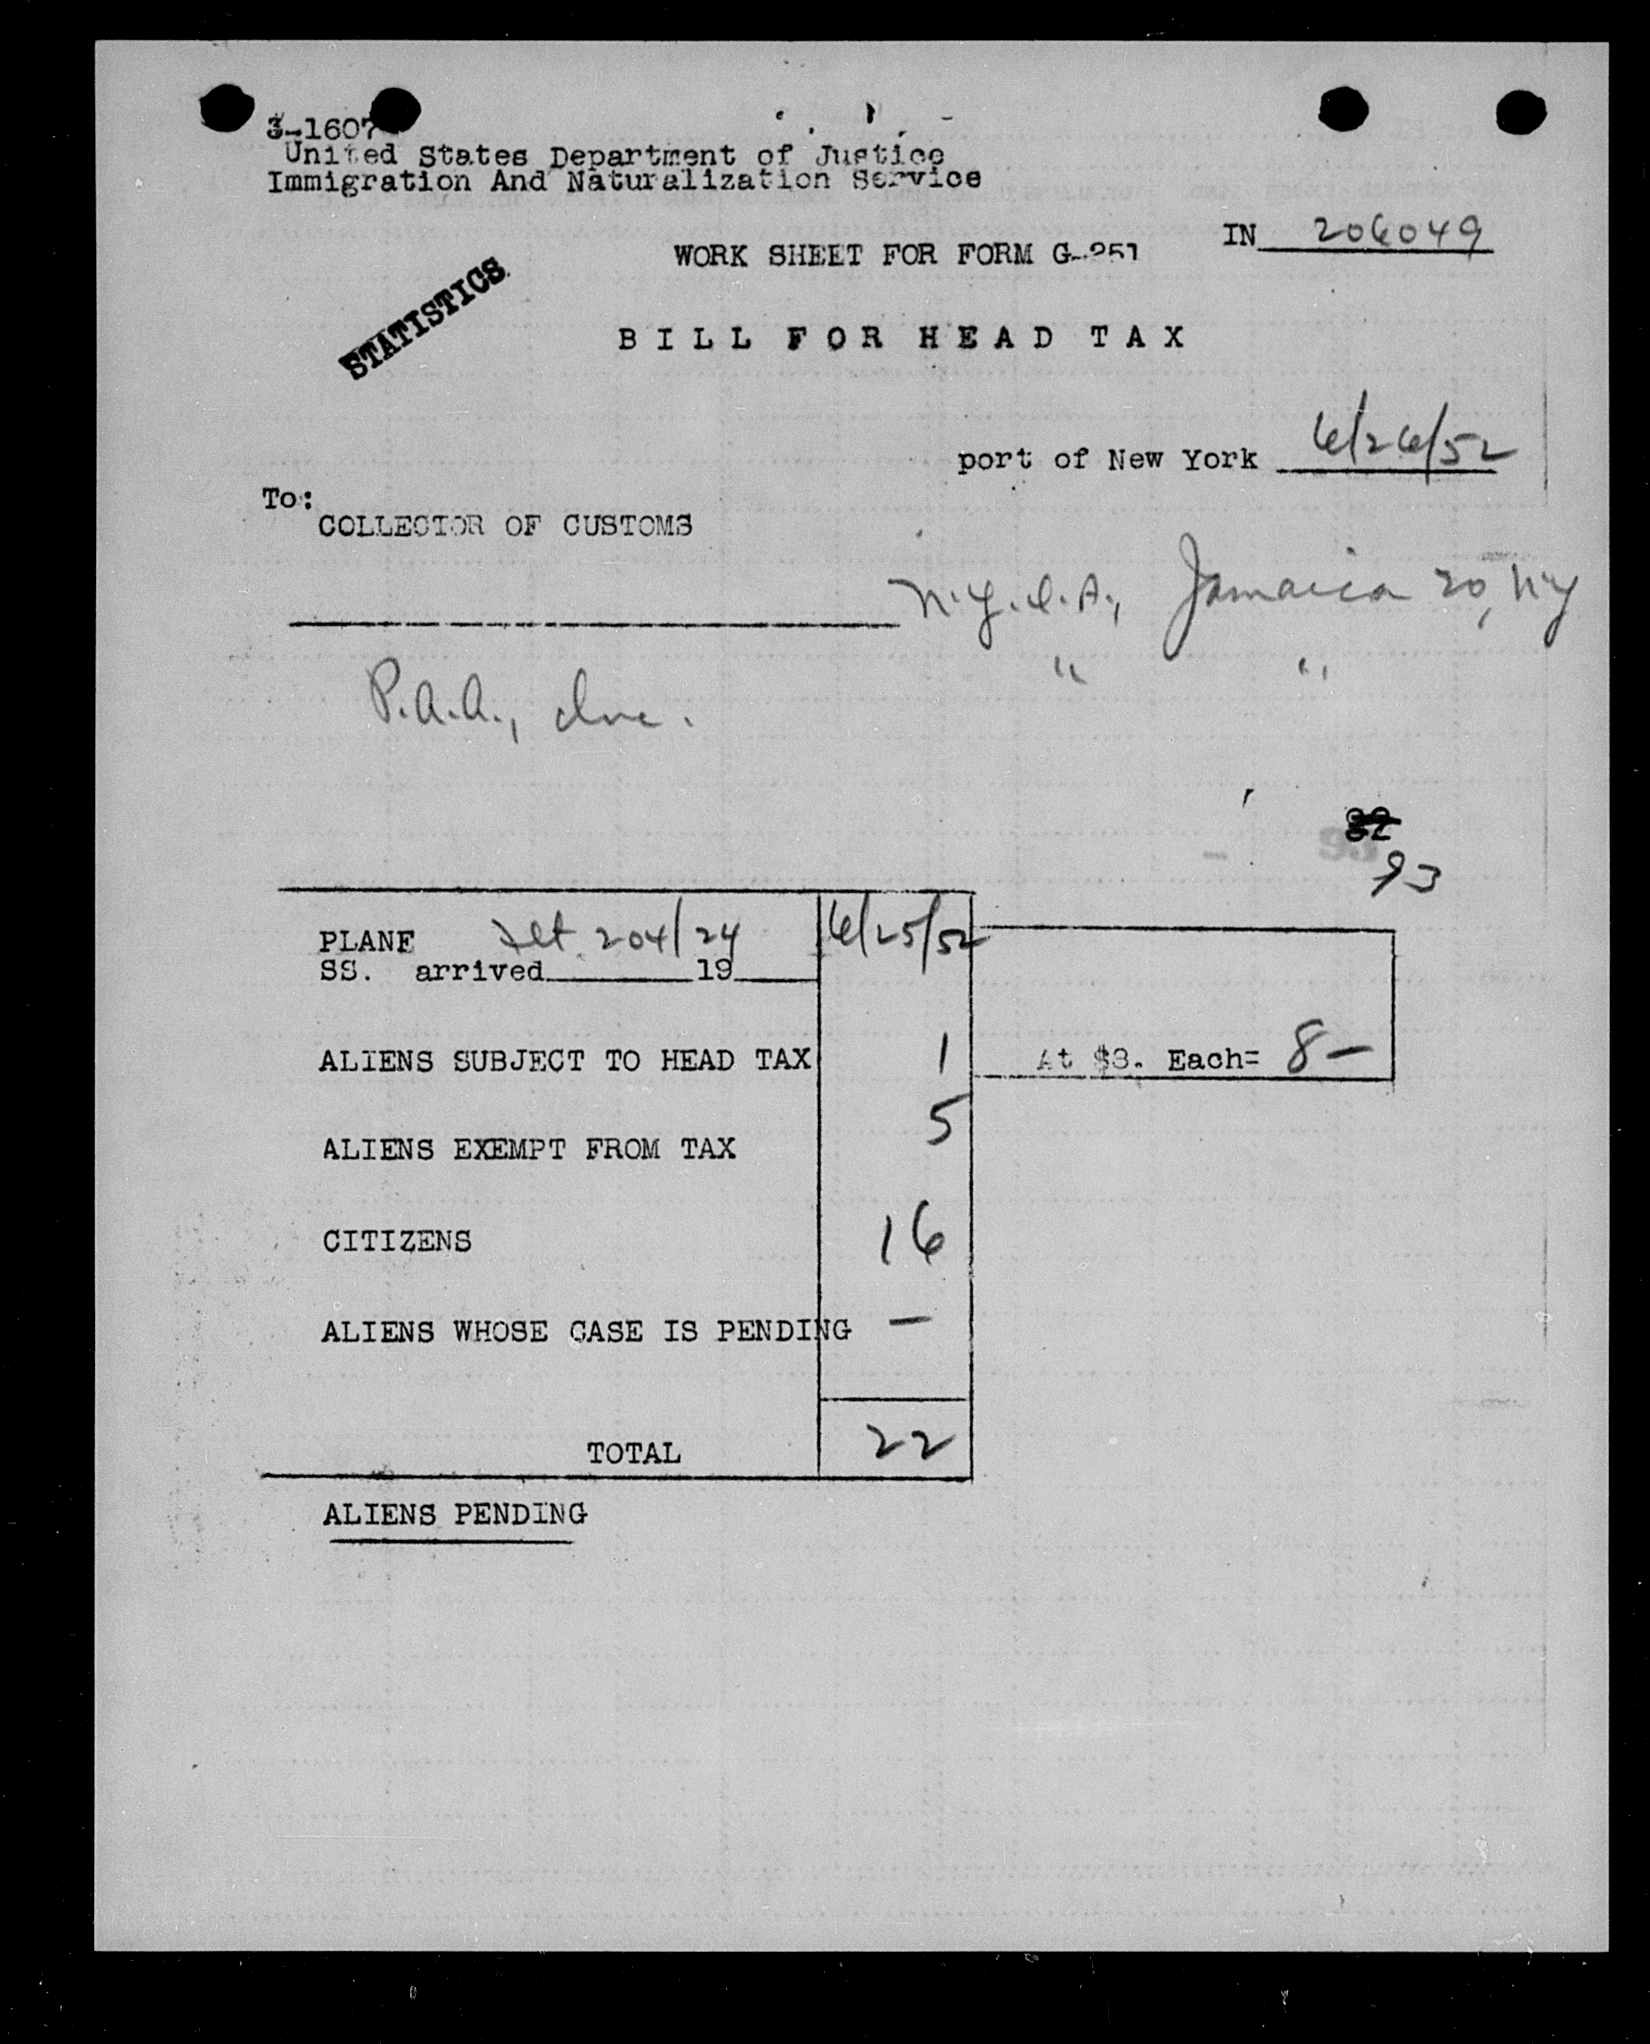 3-1607
United States Department of Justice
Immigration And Naturalization Service
IN 206049
WORK SHEET FOR FORM G-251
STATISTICS
BILL FOR HEAD TAX
port of New York 6/26/52
To:
COLLECTOR OF CUSTOMS
N.Y.I.A., Jamaica 20, NY
" "
P.A.A., Inc.
32
93
PLANE Flt 204/24 6/25/52
SS. arrived 19
ALIENS SUBJECT TO HEAD TAX 1 At $8. Each= 8 —
ALIENS EXEMPT FROM TAX 5
CITIZENS 16
ALIENS WHOSE CASE IS PENDING —
TOTAL 22
ALIENS PENDING